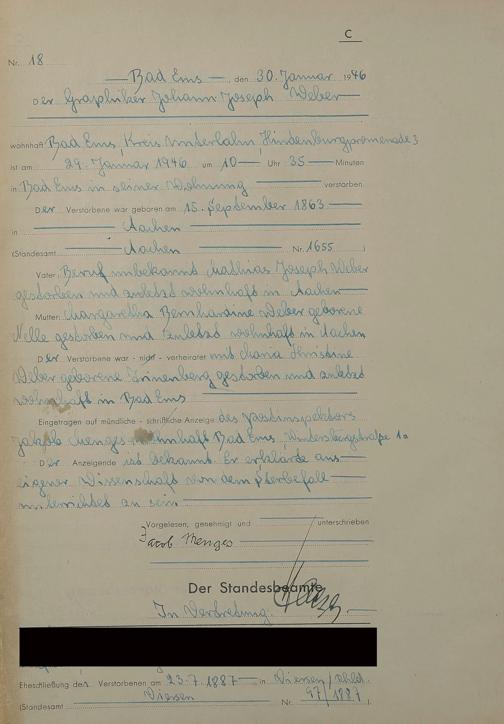 C
Nr. 18
Bad Ems, den 30. Januar 1946
Der Graphiker Johann Joseph Weber
wohnhaft Bad Ems, Kreis Unterlahn, Hindenburgpromenade 3
ist am 29. Januar 1946 um 10 Uhr 35 Minuten
in Bad Ems in seiner Wohnung verstorben.
Der Verstorbene war geboren am 15. September 1863
in Aachen
(Standesamt Aachen Nr. 1655 )
Vater: Beruf unbekannt Mathias Joseph Weber
gestorben und zuletzt wohnhaft in Aachen
Mutter: Margaretha Bernhardine Weber geborene
Nelle gestorben und zuletzt wohnhaft in Aachen
Der Verstorbene war - nicht - verheiratet mit Maria Christine
Weber geborene gestorben und zuletzt
wohnhaft in Bad Ems
Eingetragen auf mündliche - schriftliche Anzeige des Postinspektors
Jakob Menges wohnhaft Bad Ems, 1a
Der Anzeigende ist bekannt. Er erklärte aus
eigener Wissenschaft von dem Sterbefall
unterrichtet zu sein
Vorgelesen, genehmigt und unterschrieben
Jacob Menges
Der Standesbeamte
In Vertretung.
Eheschließung des Verstorbenen am 23.7.1887 in Viersen/Rhld.
(Standesamt Viersen Nr. 97/1887 )